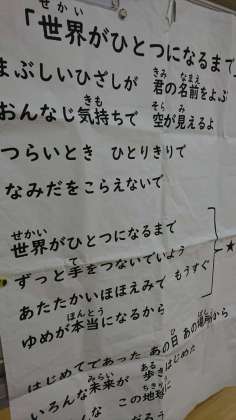 「世界がひとつになるまで
まぶしいひざしが 君の名前をよぶ
おんなじ気持ちで 空が見えるよ
つらいとき ひとりきりで
なみだをこらえないで
世界がひとつになるまで
ずっと手をつないでいよう
あたたかいほほえみで もうすぐ
ゆめが本当になるから
★
はじめてであった あの日 あの場所から
いろんな未来が 歩きはじめた
な この地球に
だろう